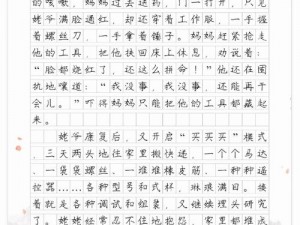 的咳嗽，妈妈过去送药，门一打开，只见
姥爷满脸通红，却还穿着工作服，一手握
着螺丝刀，一手拿着锤子。妈妈赶紧抢下
他的工具，把他扶回床上休息，劝说着：
“脸都烧红了，还这么拼命！”他还在固
执地嚷道：“我没事，我没事，还能再干
会儿。”吓得妈妈只能把他的工具都藏起
来。
姥爷康复后，又开启“买买买”模式
，三天两头地往家里搬快递，一个个马达
、一袋袋螺丝、一堆堆橡皮筋、一种种遥
控器……各种型号和式样，琳琅满目。接
着就是各种调试和组装，又继续埋头研究
了。姥姥经常忍不住地抱怨，家里都堆成